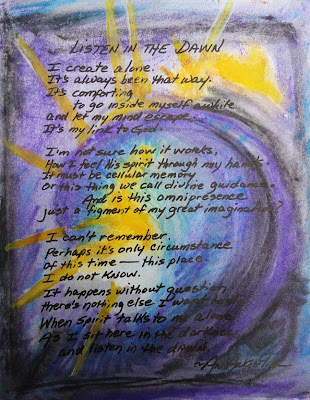 LISTEN IN THE DAWN
I create alone.
It's always been that way.
It's comforting
to go inside myself awhile
and let my mind escape.
It's my link to God.
I'm not sure how it works,
How I feel His spirit through my hands.
It must be cellular memory
or this thing we call divine guidance.
And is this omnipresence
just a figment of my great imagination?
I can't remember.
Perhaps it's only circumstance
of this time — this place.
I do not know.
It happens without question
there's nothing else I want
When spirit talks to me alone
As I sit here in the darkness
and listen in the dawn.